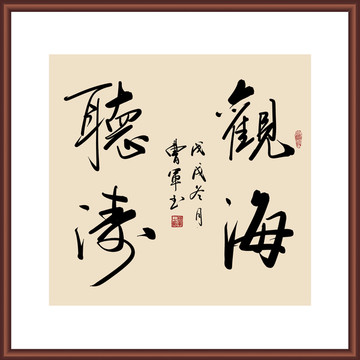 觀海
聽濤
戊戌冬月
曹軍書